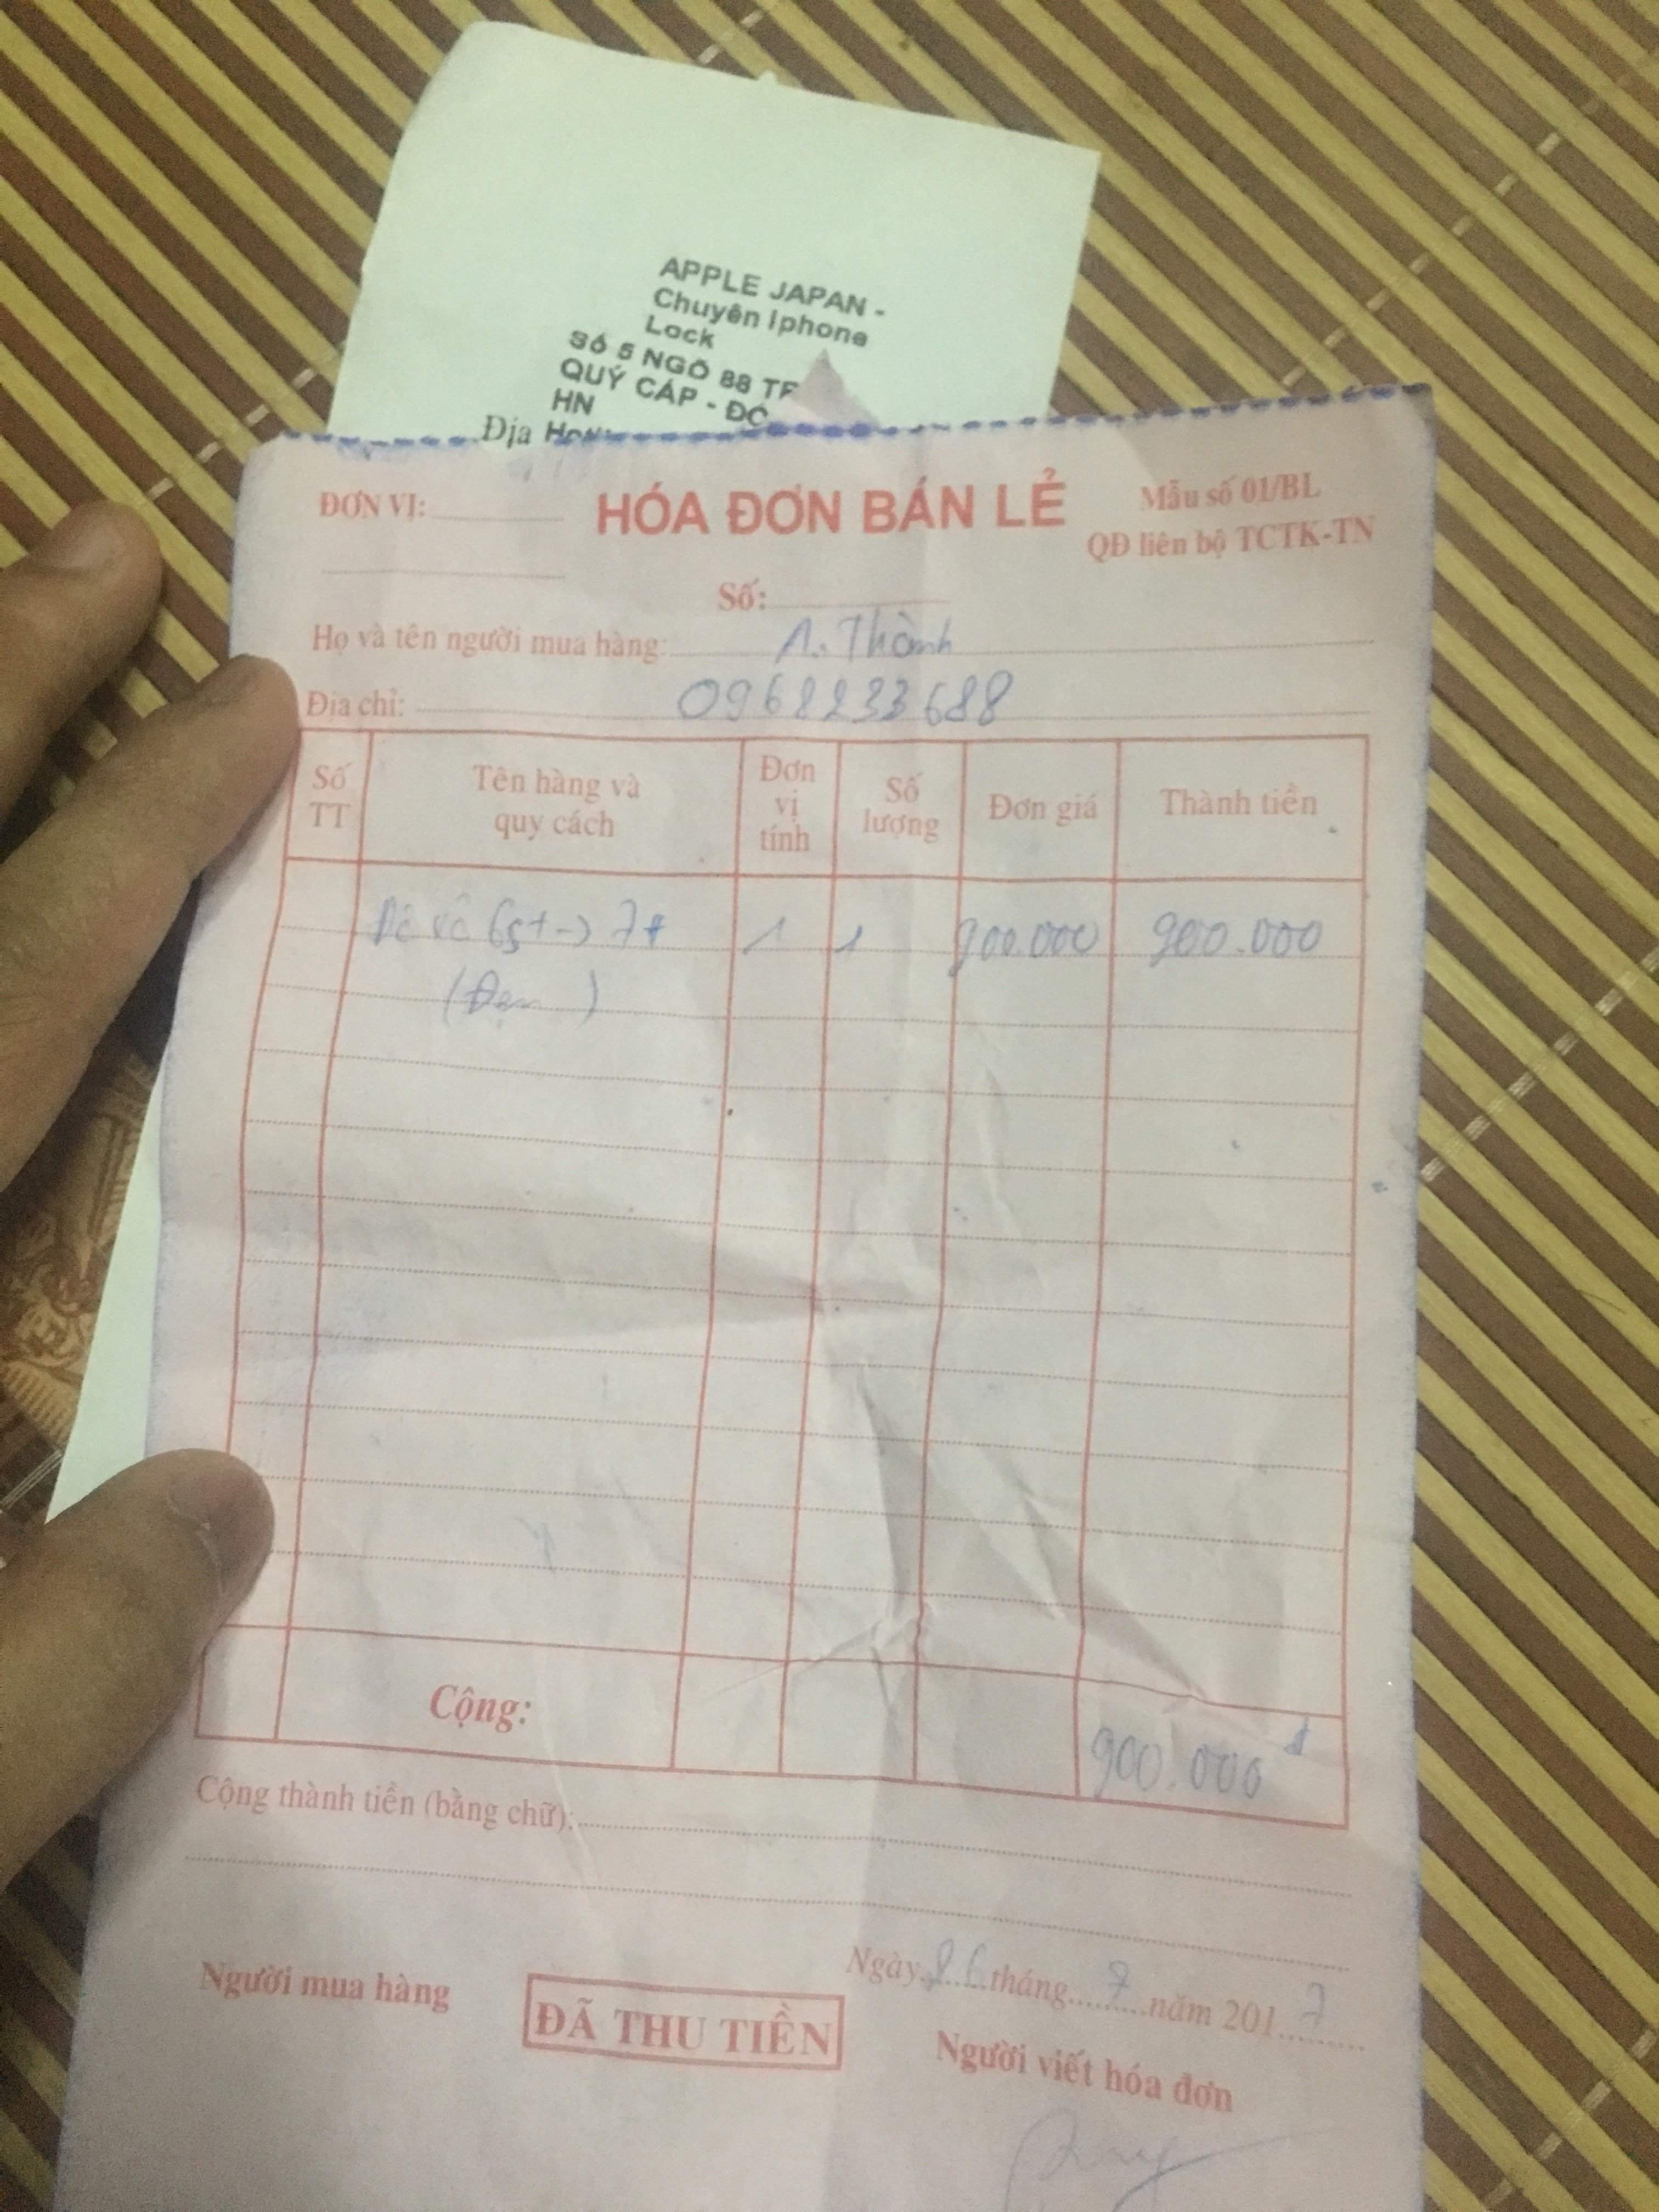 APPLE JAPAN -
Chuyên Iphone
Lock
Số 5 NGÕ 88 TR
QUÝ CÁP - ĐỐ
HN
Địa
ĐƠN VỊ:
HÓA ĐƠN BÁN LẺ
Mẫu số 01/BL
QĐ liên bộ TCTK-TN
Số:
Họ và tên người mua hàng: A. Thành
Địa chỉ: 0968233688
Số TT Tên hàng và quy cách Đơn vị tính Số lượng Đơn giá Thành tiền
Độ vỏ 6s+ -> 7+ 1 1 900.000 900.000
(Đen)
Cộng: 900.000 đ
Cộng thành tiền (bằng chữ):
Ngày 26 tháng 7 năm 2017
Người mua hàng
ĐÃ THU TIỀN
Người viết hóa đơn